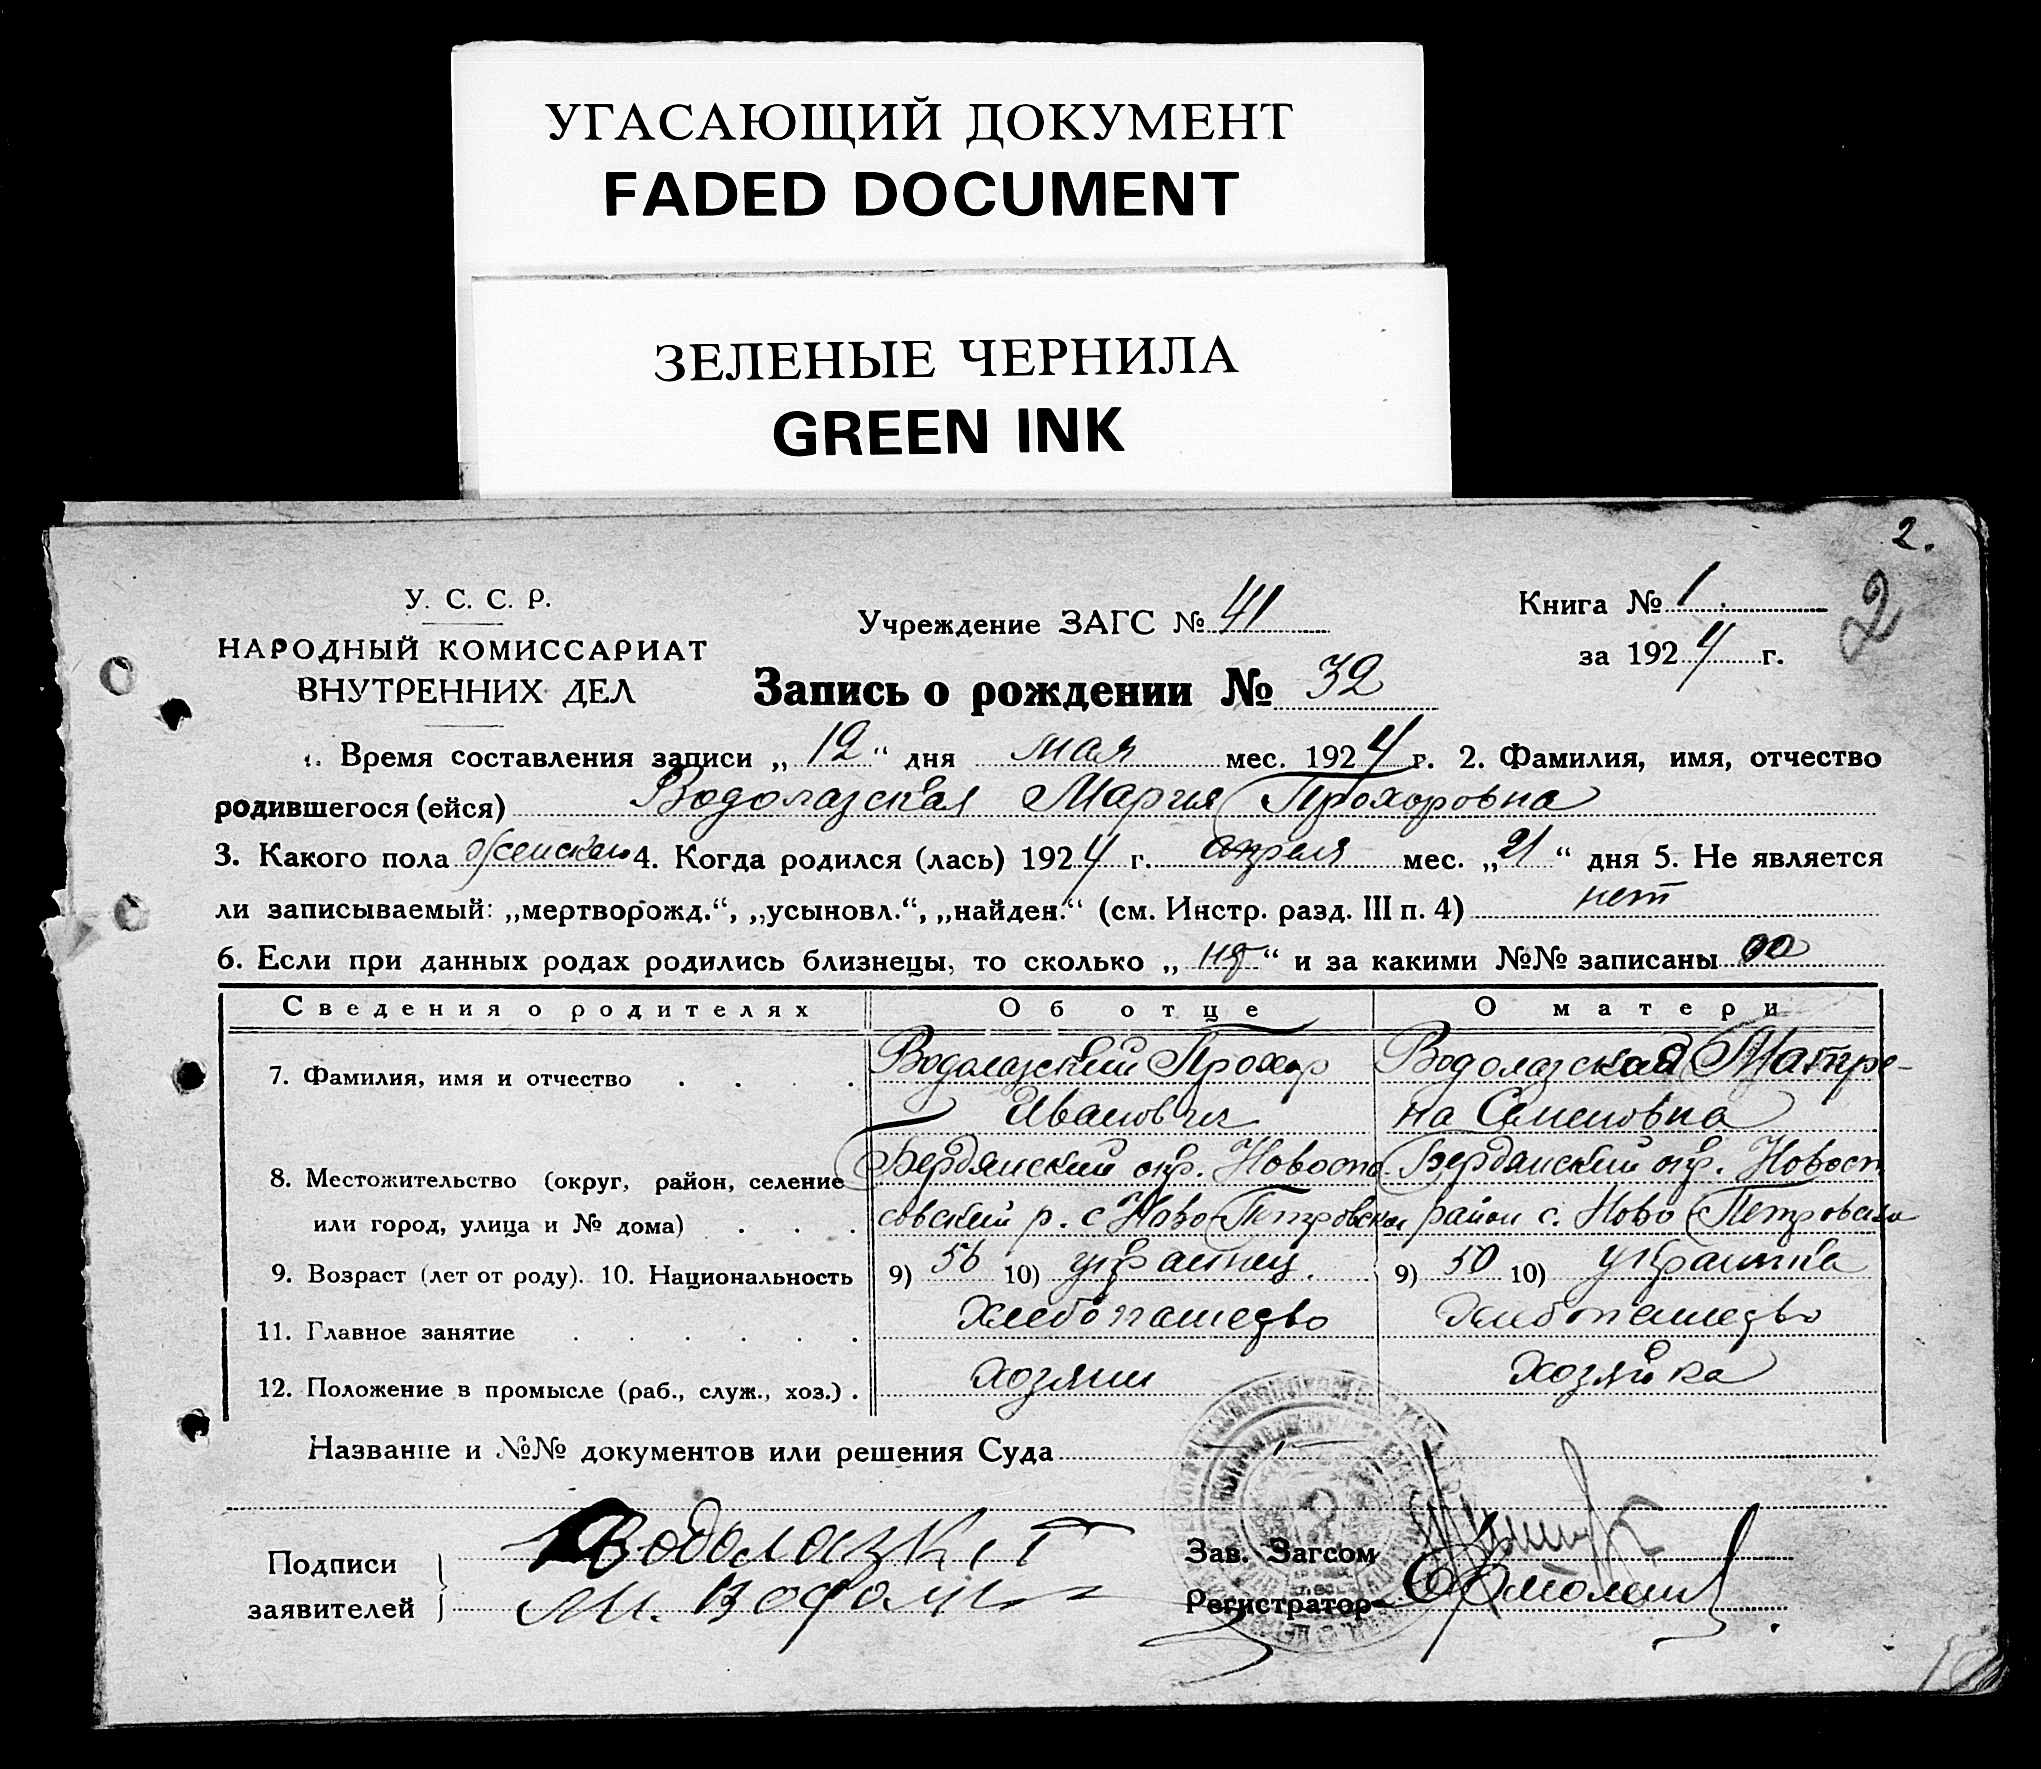 УГАСАЮЩИЙ ДОКУМЕНТ
FADED DOCUMENT
ЗЕЛЕНЫЕ ЧЕРНИЛА
GREEN INK
2.
2
У. С. С. Р.
НАРОДНЫЙ КОМИССАРИАТ
ВНУТРЕННИХ ДЕЛ
Учреждение ЗАГС № 41
Книга № 1.
за 1924 г.
Запись о рождении № 32
1. Время составления записи „ 12 “ дня мая мес. 1924 г. 2. Фамилия, имя, отчество
родившегося (ейся) Водолазская Мария Прохоровна
3. Какого пола женскаго 4. Когда родился (лась) 1924 г. апреля мес. „ 21 “ дня 5. Не является
ли записываемый: „мертворожд.“, „усыновл.“, „найден.“ (см. Инстр. разд. III п. 4) нет
6. Если при данных родах родились близнецы, то сколько „ “ и за какими №№ записаны 00
Сведения о родителях Об отце О матери
7. Фамилия, имя и отчество . . . . Водолазский Прохор Иванович Водолазская Матрена Семеновна
8. Местожительство (округ, район, селение или город, улица и № дома) . . . Бердянский окр. Новоспасовский р. с Ново Петровска Бердянский окр. Новосп район с. Ново Петровска
9. Возраст (лет от роду). 10. Национальность 9) 56 10) украинец. 9) 50 10) украинка
11. Главное занятие . . . . . . Хлебопашество Хлебопашество
12. Положение в промысле (раб., служ., хоз.) . хозяин хозяйка
Название и №№ документов или решения Суда
Подписи
заявителей
Зав. Загсом
Регистратор